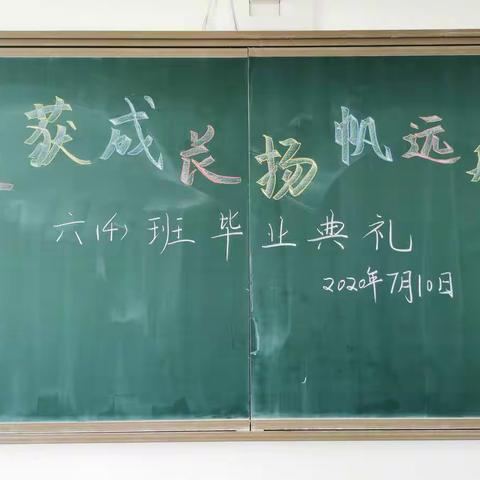 获成长扬帆远
六(4)班毕业典礼
2020年7月10日